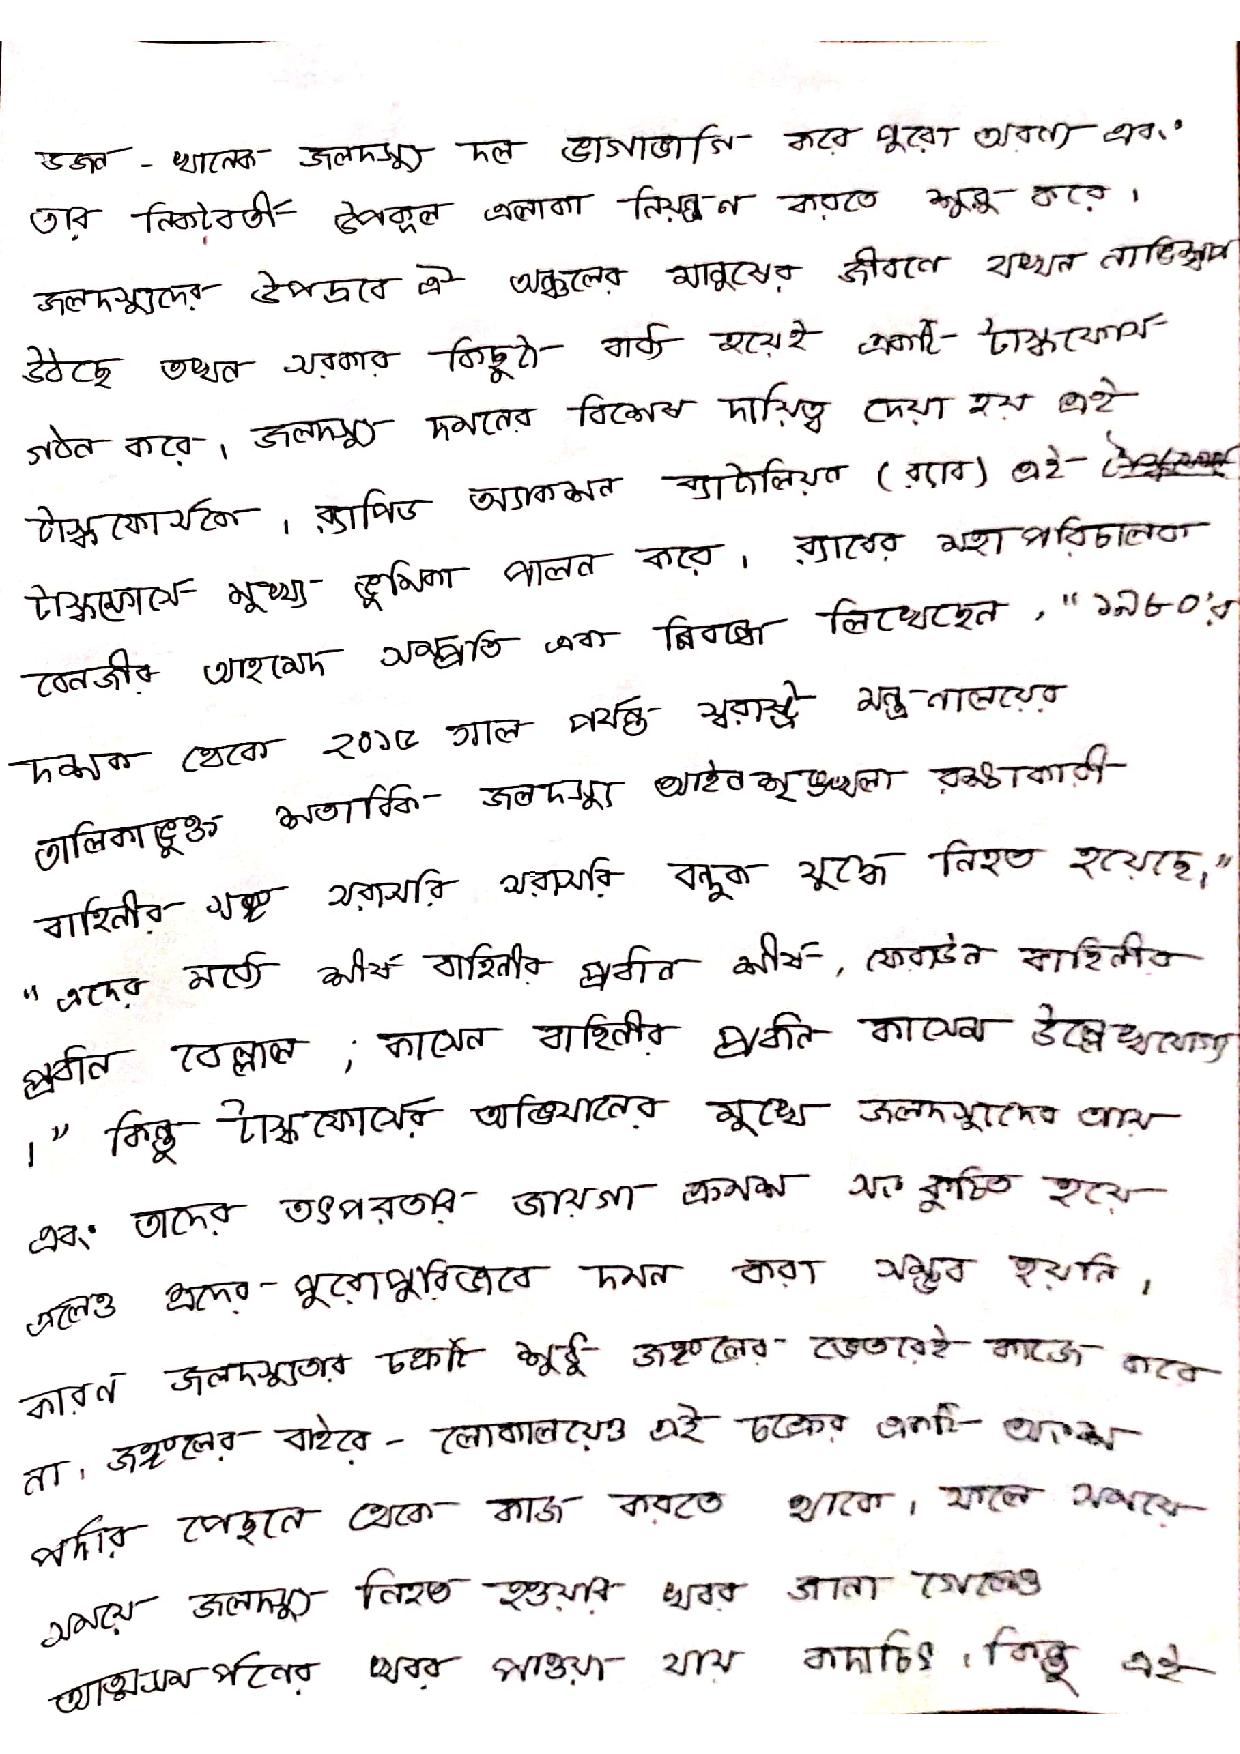 ডজন - খানেক জলদস্যু দল ভাগাভাগি করে পুরো অরণ্য এবং
তার নিকটবর্তী উপকূল এলাকা নিয়ন্ত্রণ করতে শুরু করে।
জলদস্যুদের উপদ্রবে ঐ অঞ্চলের মানুষের জীবনে যখন নাভিশ্বাপ
উঠছে তখন সরকার কিছুটা বাধ্য হয়েই একটি টাস্কফোর্স
গঠন করে। জলদস্যু দমনের বিশেষ দায়িত্ব দেয়া হয় এই
টাস্কফোর্সকে। র‍্যাপিড অ্যাকশন ব্যাটালিয়ন (র‍্যাব) এই
টাস্কফোর্সে মুখ্য ভুমিকা পালন করে। র‍্যাবের মহাপরিচালক
বেনজীর আহমেদ সম্প্রতি এক নিবন্ধে লিখেছেন, "১৯৮০'র
দশক থেকে ২০১৫ সাল পর্যন্ত স্বরাষ্ট্র মন্ত্রনালয়ের
তালিকাভুক্ত শতাধিক জলদস্যু আইনশৃঙ্খলা রক্ষাকারী
বাহিনীর সঙ্গে সরাসরি সরাসরি বন্দুক যুদ্ধে নিহত হয়েছে।"
"এদের মধ্যে শীর্ষ বাহিনীর প্রধান শীর্ষ, ফেরাউন বাহিনীর
প্রধান বেল্লাল; কাসেন বাহিনীর প্রধান কাসেম উল্লেখযোগ্য
।" কিন্তু টাস্কফোর্সের অভিযানের মুখে জলদস্যুদের আয়
এবং তাদের তৎপরতার জায়গা ক্রমশ সংকুচিত হয়ে
এলেও এদের পুরোপুরিভাবে দমন করা সম্ভব হয়নি।
কারণ জলদস্যুতার চক্রটি শুধু জঙ্গলের ভেতরেই কাজে করে
না। জঙ্গলের বাইরে - লোকালয়েও এই চক্রের একটি অংশ
পর্দার পেছনে থেকে কাজ করতে থাকে। ফলে সময়ে
সময়ে জলদস্যু নিহত হওয়ার খবর জানা গেলেও
আত্মসমর্পনের খবর পাওয়া যায় কদাচিৎ। কিন্তু এই